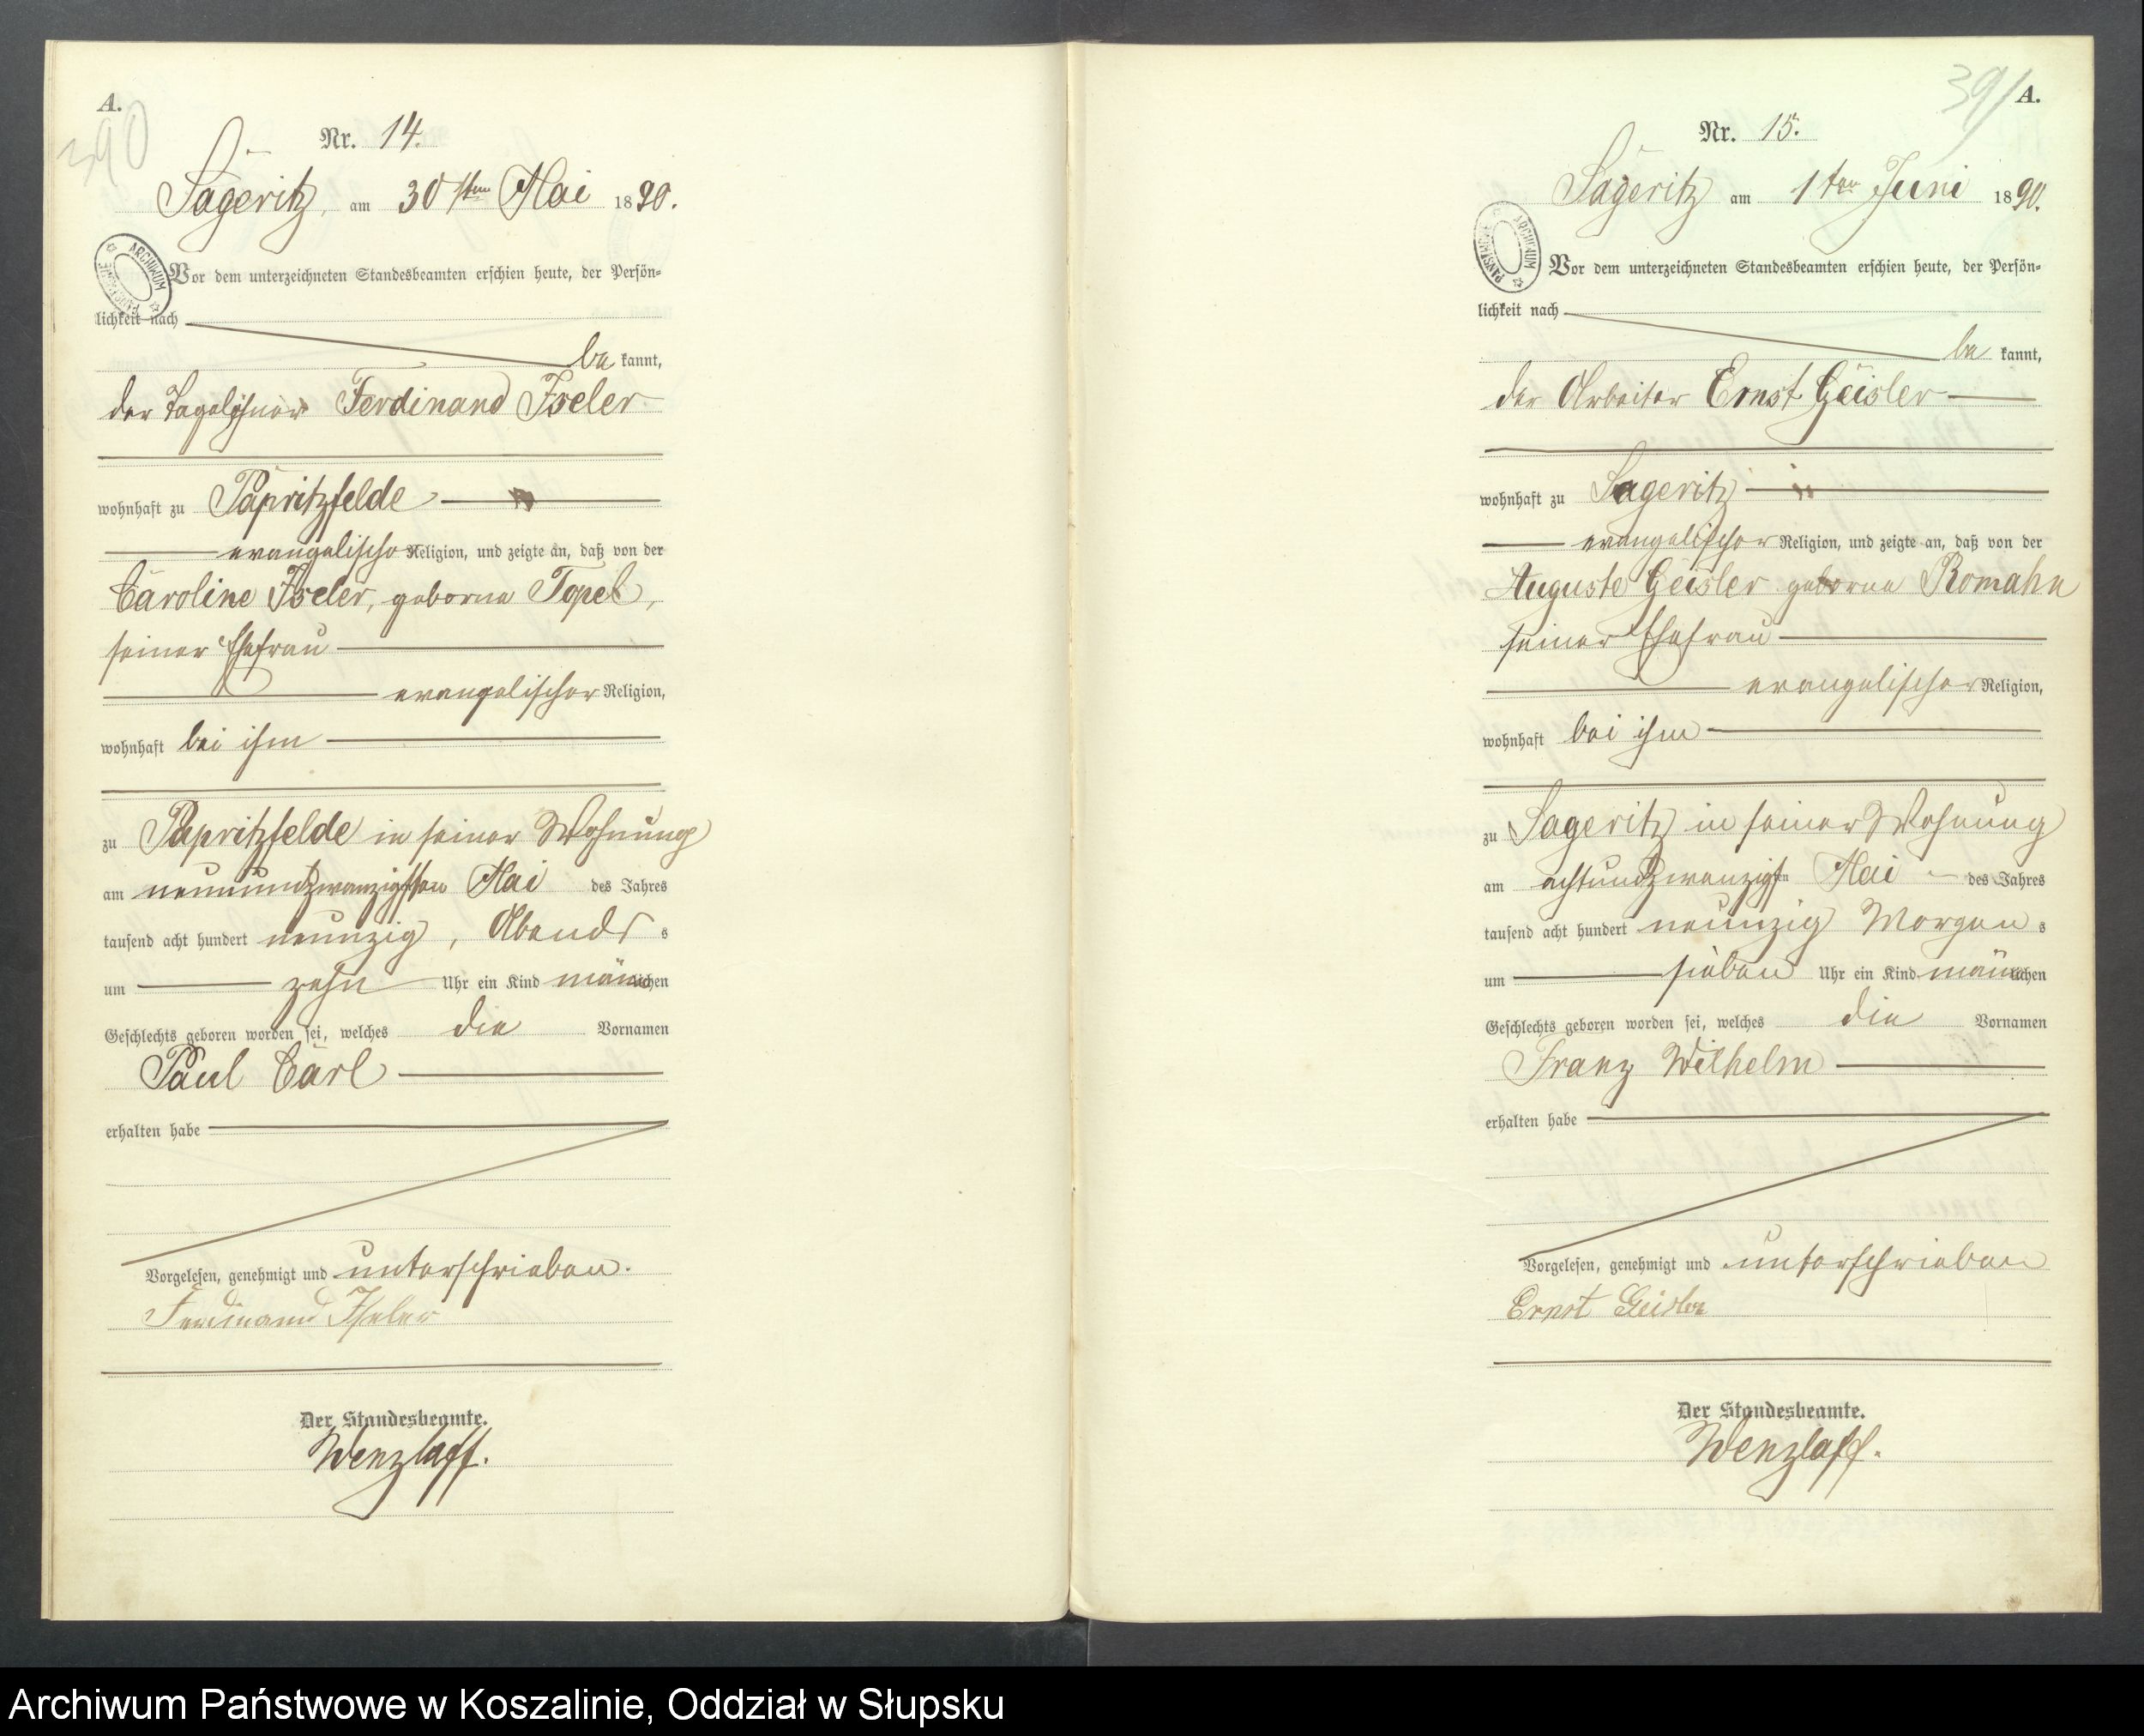 A.
390
Nr. 14.
Sageritz, am 30sten Mai 1890.
ARCHIWUM PAŃSTWOWE
Vor dem unterzeichneten Standesbeamten erschien heute, der Persön-
lichkeit nach
be kannt,
der Tagelöhner Ferdinand Iseler
wohnhaft zu Papritzfelde
evangelischer Religion, und zeigte an, daß von der
Caroline Iseler, geborne Topel,
seiner Ehefrau
evangelischer Religion,
wohnhaft bei ihm
zu Papritzfelde in seiner Wohnung
am neunundzwanzigsten Mai des Jahres
tausend acht hundert neunzig, Abends
um zehn Uhr ein Kind männlichen
Geschlechts geboren worden sei, welches die Vornamen
Paul Carl
erhalten habe
Vorgelesen, genehmigt und unterschrieben.
Ferdinand Iseler
Der Standesbeamte.
Wenzlaff.
391
A.
Nr. 15.
Sageritz am 1ten Juni 1890.
ARCHIWUM PAŃSTWOWE
Vor dem unterzeichneten Standesbeamten erschien heute, der Persön-
lichkeit nach
be kannt,
der Arbeiter Ernst Geisler
wohnhaft zu Sageritz
evangelischer Religion, und zeigte an, daß von der
Auguste Geisler geborne Romahn
seiner Ehefrau
evangelischer Religion,
wohnhaft bei ihm
zu Sageritz in seiner Wohnung
am achtundzwanzigsten Mai des Jahres
tausend acht hundert neunzig Morgens
um sieben Uhr ein Kind männlichen
Geschlechts geboren worden sei, welches die Vornamen
Franz Wilhelm
erhalten habe
Vorgelesen, genehmigt und unterschrieben
Ernst Geisler
Der Standesbeamte.
Wenzlaff.
Archiwum Państwowe w Koszalinie, Oddział w Słupsku